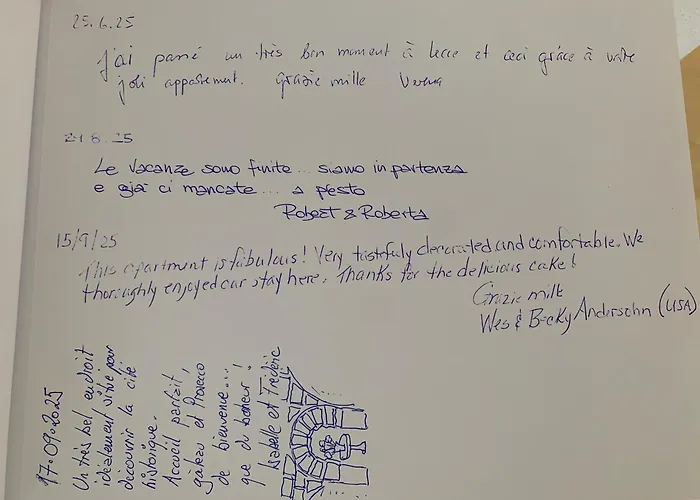 25.6.25
J'ai passé un très bon moment à Lecce et ceci grâce à votre
joli appartement. Grazie mille Verena
21 8.25
Le vacanze sono finite... siamo in partenza
e già ci mancate.... a presto
Robert & Roberta
15/9/25
This apartment is fabulous! Very tastfuly decorated and comfortable. We
thoroughly enjoyed our stay here. Thanks for the delicious cake!
Grazie mille
Wes & Becky (USA)
17.09.2025
Un très bel endroit
idéalement situé pour
découvrir la cité
historique.
Accueil parfait,
gâteau et Prosecco
de bienvenue...
que du bonheur!
Isabelle et Frédéric